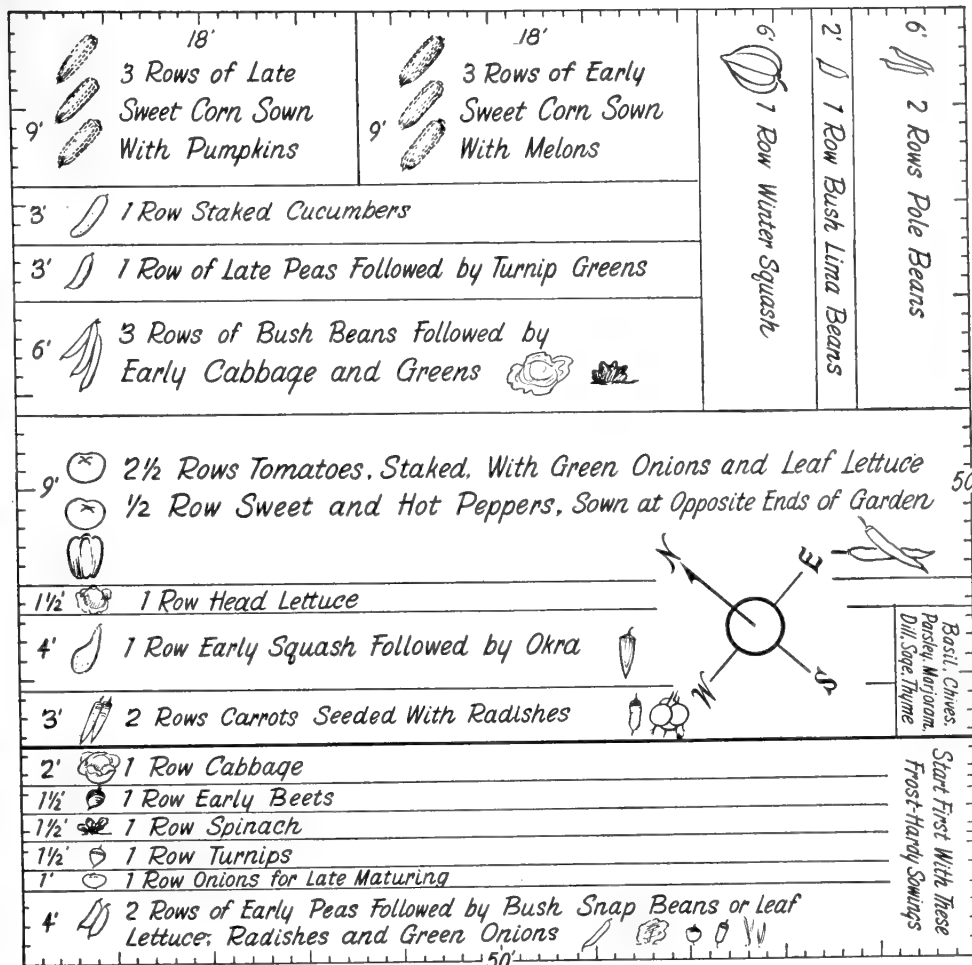 18'
3 Rows of Late
Sweet Corn Sown
With Pumpkins
9'
18'
3 Rows of Early
Sweet Corn Sown
With Melons
9'
6' 1 Row Winter Squash
2' 1 Row Bush Lima Beans
6' 2 Rows Pole Beans
3' 1 Row Staked Cucumbers
3' 1 Row of Late Peas Followed by Turnip Greens
6' 3 Rows of Bush Beans Followed by
Early Cabbage and Greens
9' 2½ Rows Tomatoes, Staked, With Green Onions and Leaf Lettuce
½ Row Sweet and Hot Peppers, Sown at Opposite Ends of Garden
50'
N
E
W
S
1½' 1 Row Head Lettuce
4' 1 Row Early Squash Followed by Okra
3' 2 Rows Carrots Seeded With Radishes
Basil, Chives,
Parsley, Marjoram,
Dill, Sage, Thyme
2' 1 Row Cabbage
1½' 1 Row Early Beets
1½' 1 Row Spinach
1½' 1 Row Turnips
1' 1 Row Onions for Late Maturing
4' 2 Rows of Early Peas Followed by Bush Snap Beans or Leaf
Lettuce, Radishes and Green Onions
Start First With These
Frost-Hardy Sowings
50'